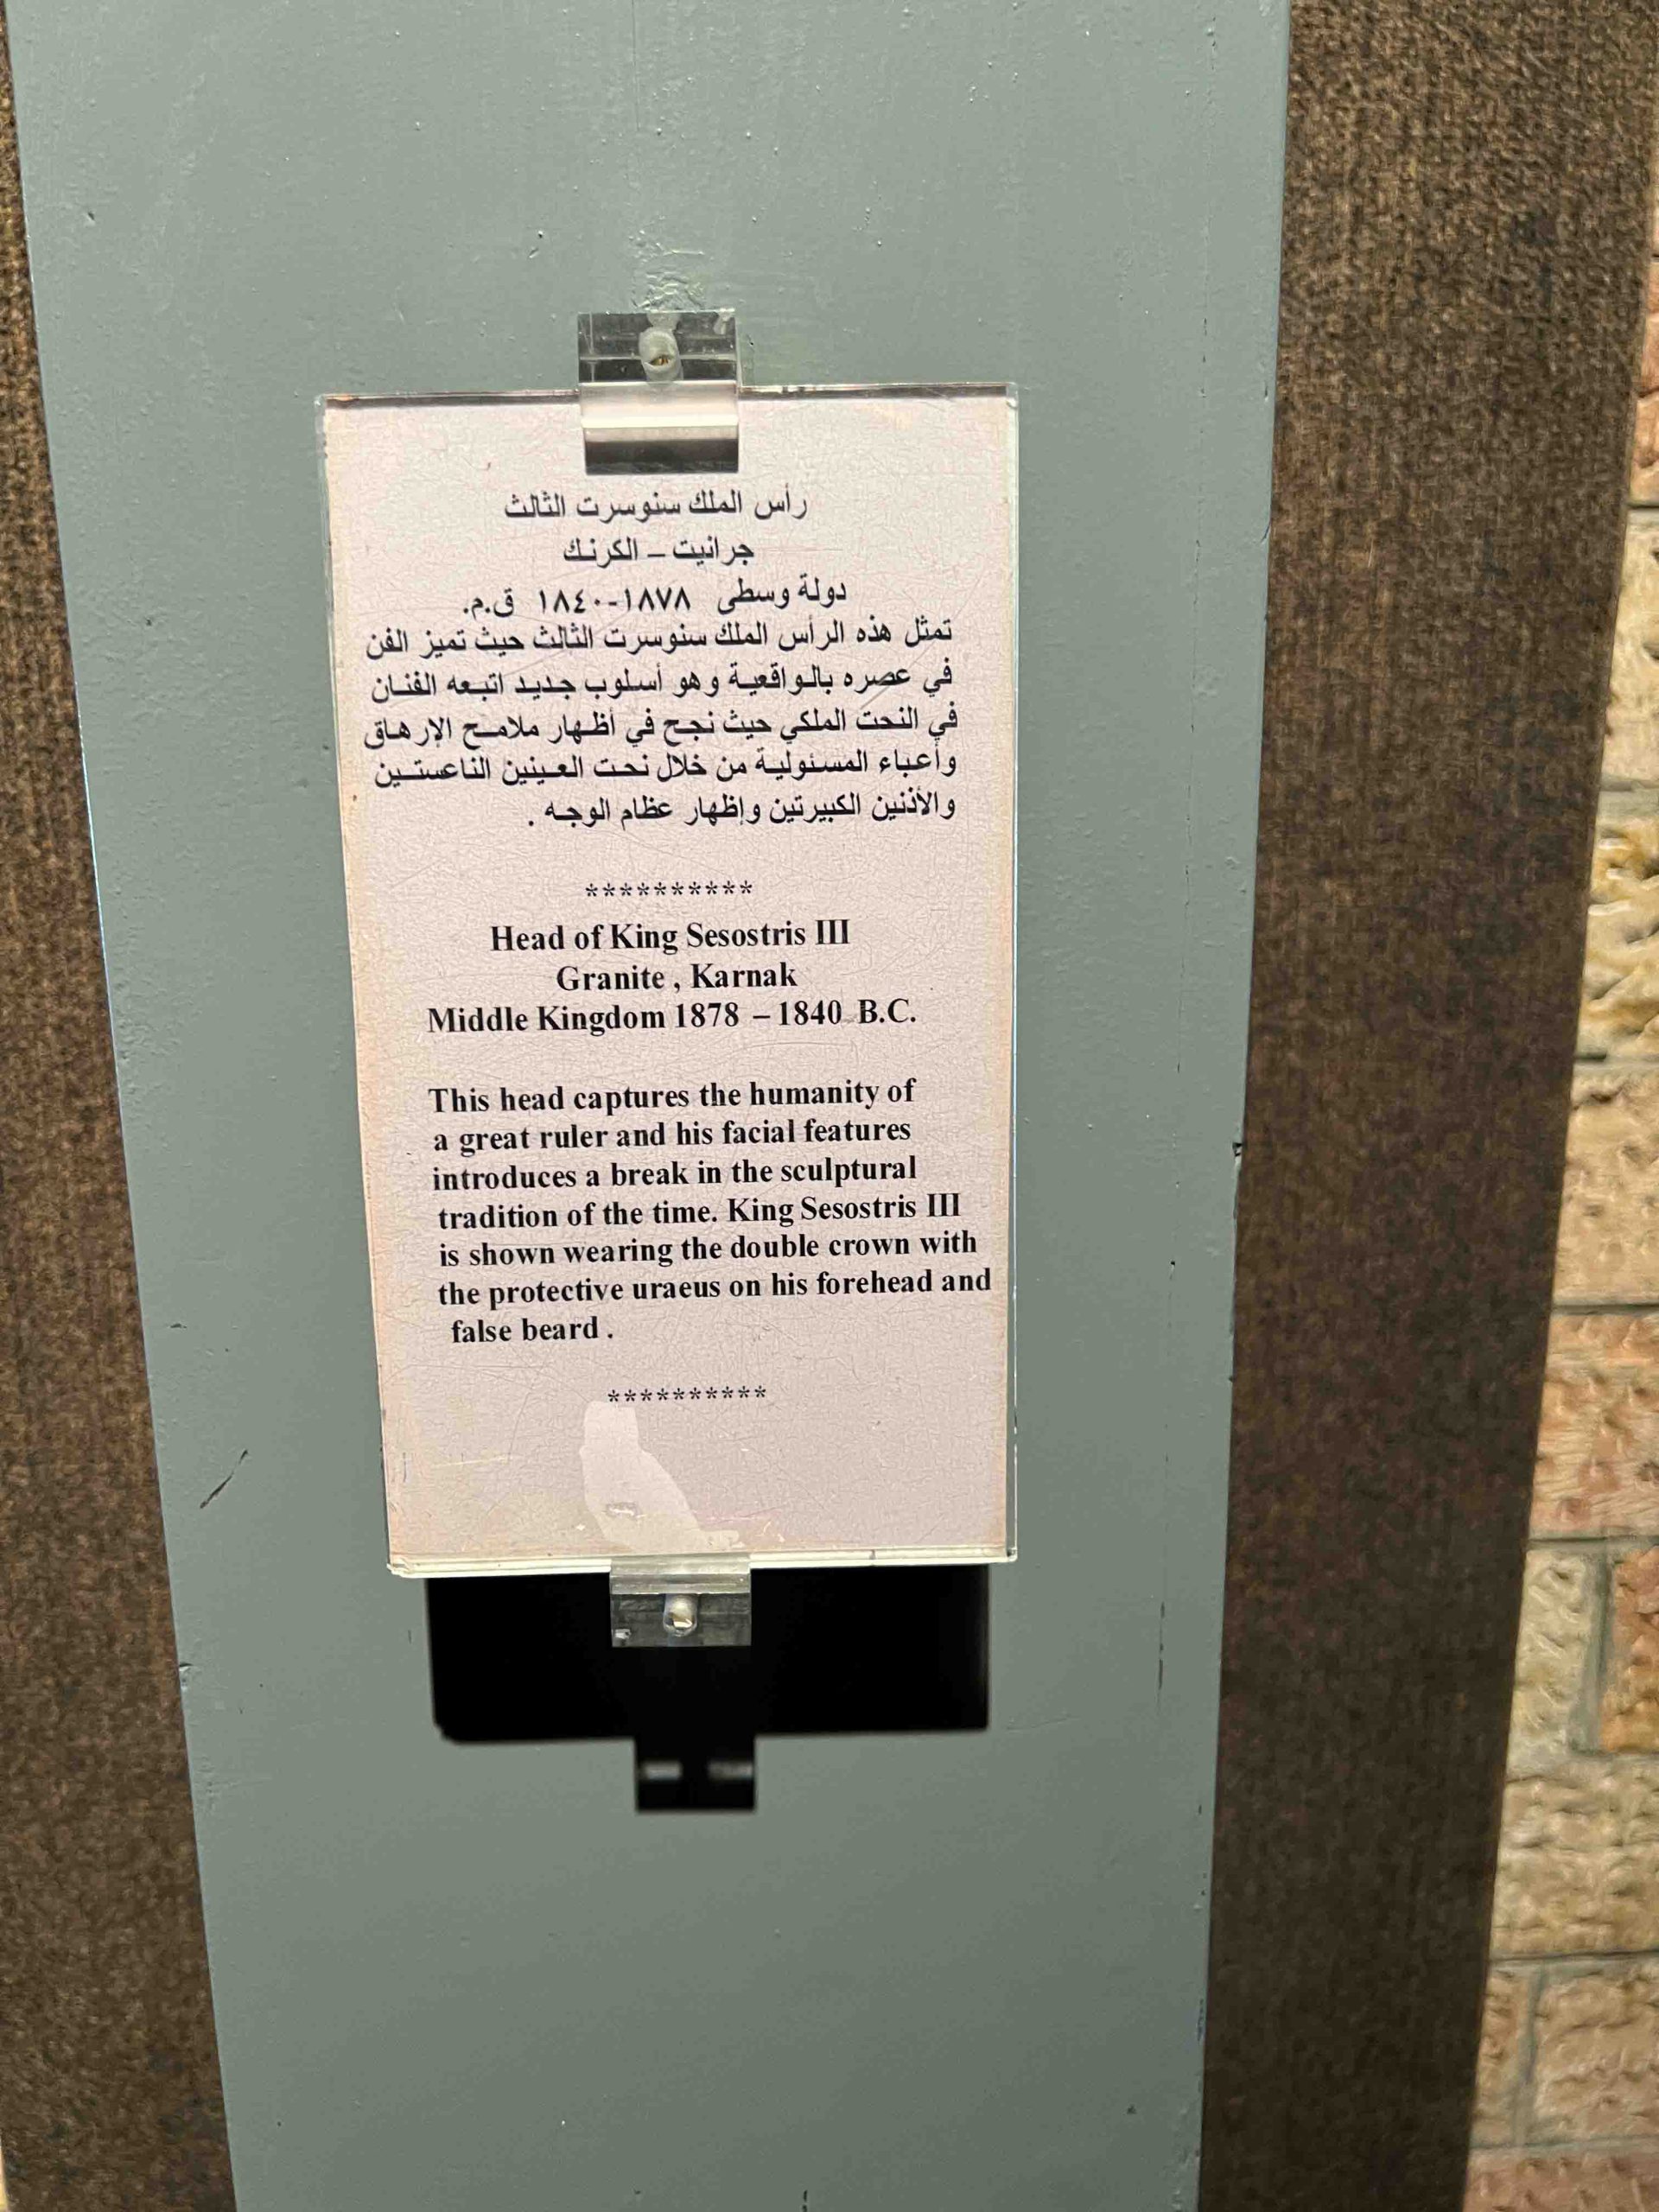 رأس الملك سنوسرت الثالث
جرانيت – الكرنك
دولة وسطى ١٨٧٨-١٨٤٠ ق.م.
تمثل هذه الرأس الملك سنوسرت الثالث حيث تميز الفن
في عصره بالواقعية وهو أسلوب جديد اتبعه الفنان
في النحت الملكي حيث نجح في أظهار ملامح الإرهاق
وأعباء المسئولية من خلال نحت العينين الناعستين
والأذنين الكبيرتين وإظهار عظام الوجه .
**********
Head of King Sesostris III
Granite , Karnak
Middle Kingdom 1878 – 1840 B.C.
This head captures the humanity of
a great ruler and his facial features
introduces a break in the sculptural
tradition of the time. King Sesostris III
is shown wearing the double crown with
the protective uraeus on his forehead and
false beard .
**********